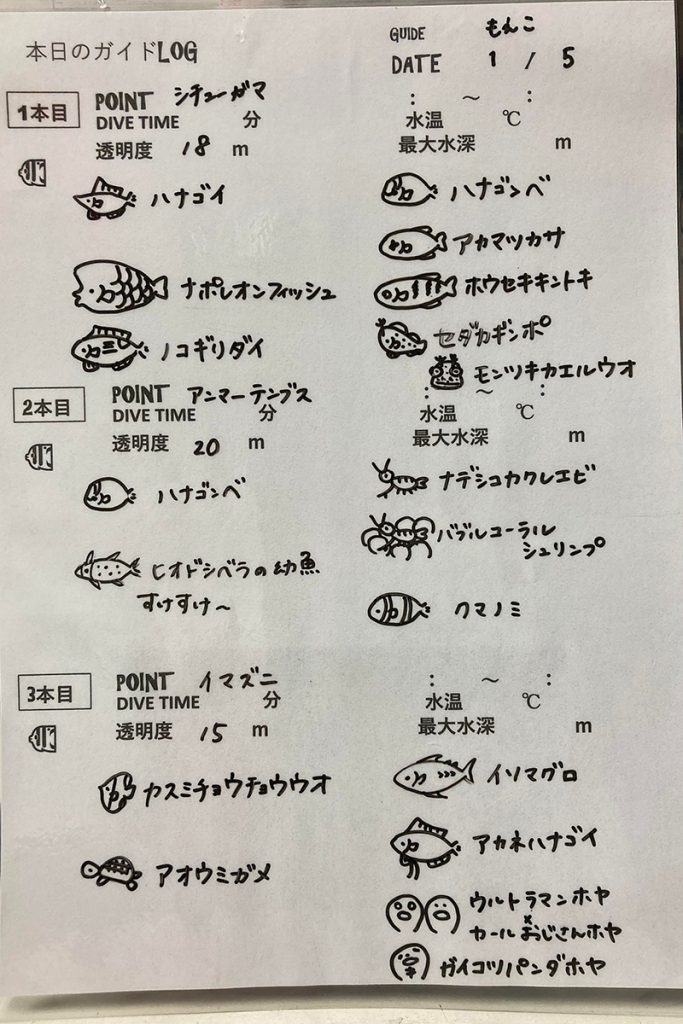 本日のガイドLOG
GUIDE もんこ
DATE 1 / 5
1本目 POINT シチューガマ
: ～ :
DIVE TIME 分
水温 ℃
透明度 18 m
最大水深 m
ハナゴイ
ナポレオンフィッシュ
ノコギリダイ
ハナゴンベ
アカマツカサ
ホウセキキントキ
セダカギンポ
モンツキカエルウオ
2本目 POINT アンマーテンブス
: ～ :
DIVE TIME 分
水温 ℃
透明度 20 m
最大水深 m
ハナゴンベ
ヒオドシベラの幼魚
すけすけ～
ナデシコカクレエビ
バブルコーラル
シュリンプ
クマノミ
3本目 POINT イマズニ
: ～ :
DIVE TIME 分
水温 ℃
透明度 15 m
最大水深 m
カスミチョウチョウウオ
アオウミガメ
イソマグロ
アカネハナゴイ
ウルトラマンホヤ
×
カールおじさんホヤ
ガイコツパンダホヤ